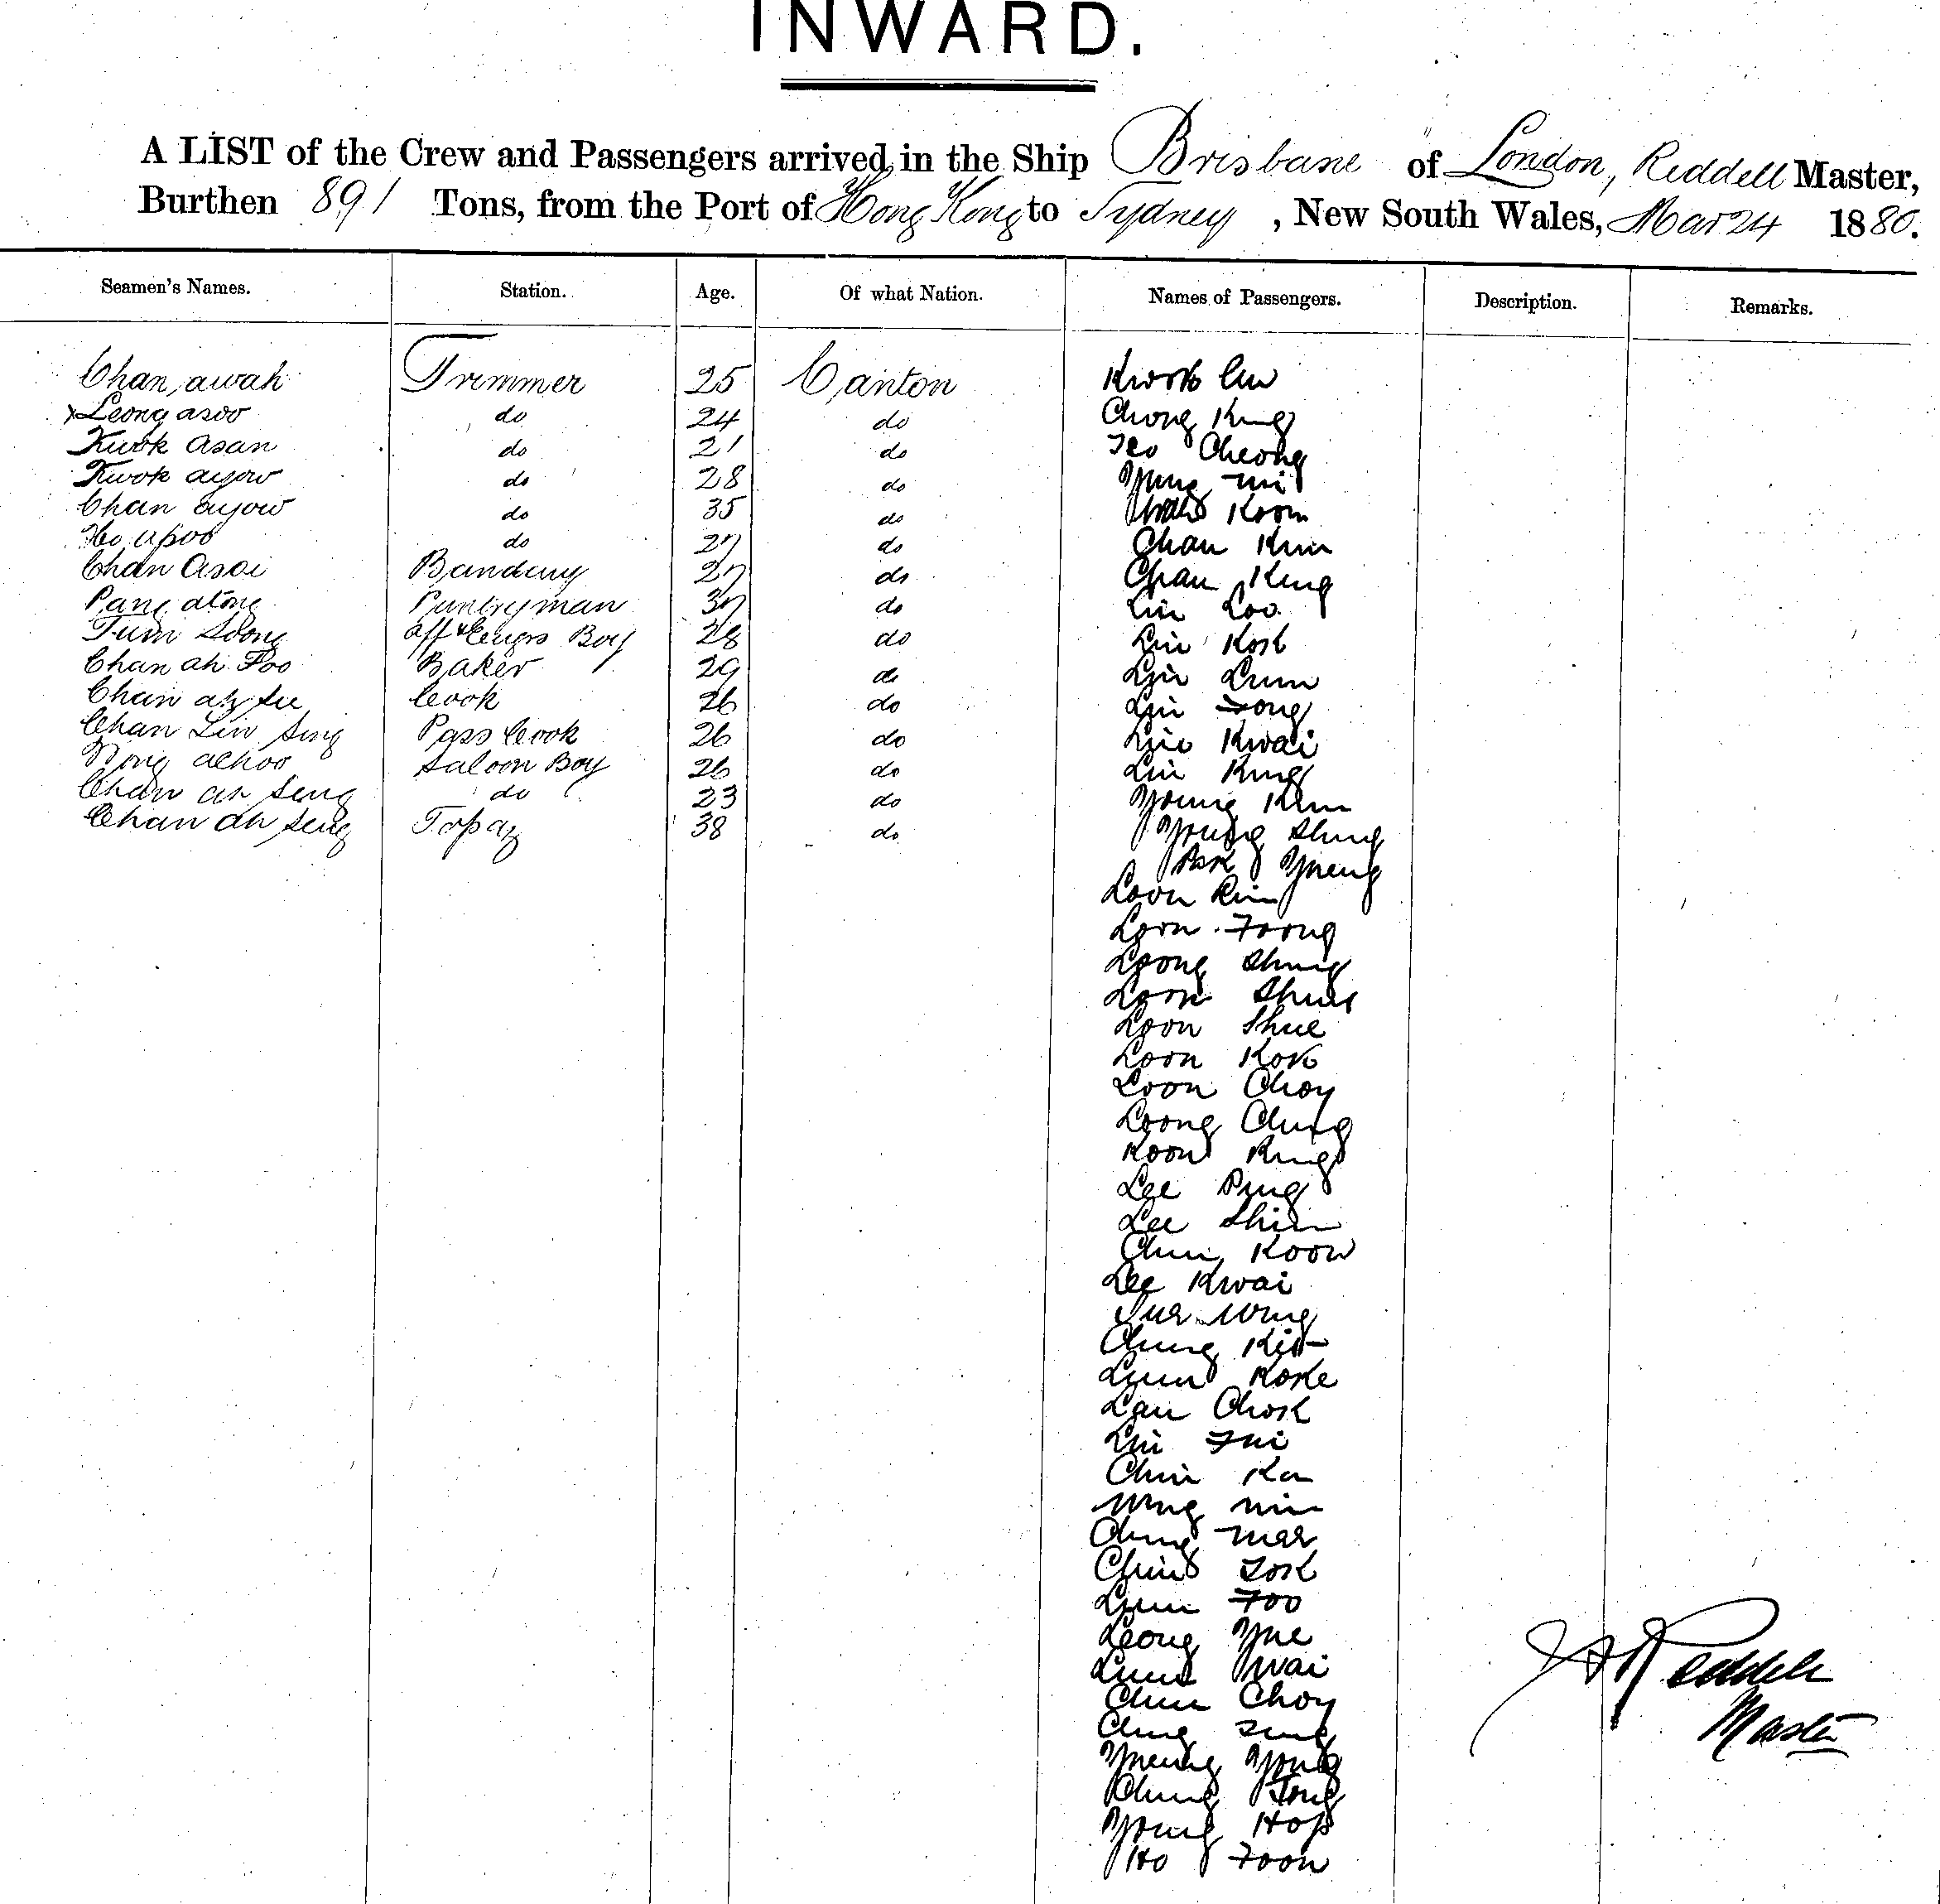 INWARD.
A LIST of the Crew and Passengers arrived in the Ship Brisbane of London, Reddell Master,
Burthen 891 Tons, from the Port of Hong Kong to Sydney, New South Wales, Mar 24 1880.
Seamen's Names. Station. Age. Of what Nation. Names of Passengers. Description. Remarks.
Chan awah Trimmer 25 Canton Kwok
Leong asoo do 24 do Chong King
Kwok asan do 21 do Cheong
Kwok ayow do 28 do
Chan ayow do 35 do Koon
Ho apoo do 27 do Chan Kum
Chan Asoi 27 do Chan King
Pang atong Pantryman 37 do Liu Loo
Tum Soong Boy 28 do Liu Kok
Chan ah Foo Baker 29 do Liu Lum
Chan ah Cook 26 do Liu Fong
Chan Lin Sing Pass Cook 26 do Liu Kwai
achoo Saloon Boy 26 do Liu King
Chan ah Seng do 23 do Young Kum
Chan ah Seng Topaz 38 do Young Shing
Loon
Loon Foong
Loong Shing
Loon
Loon Shue
Loon Kok
Loon Choy
Loong Chung
Koon King
Lee Ping
Lee Shim
Chun Koon
Lee Kwai
Sue Wing
Chung Kit
Lum Koke
Lau Chok
Liu Fui
Chin Ka
Wing Min
Chung Mar
Fook
Lum Foo
Leong Yue
Wai
Chun Choy
Ching Sing
Yueng Yong
Chung Tong
Young Hop
Ho Foon
Reddell
Master